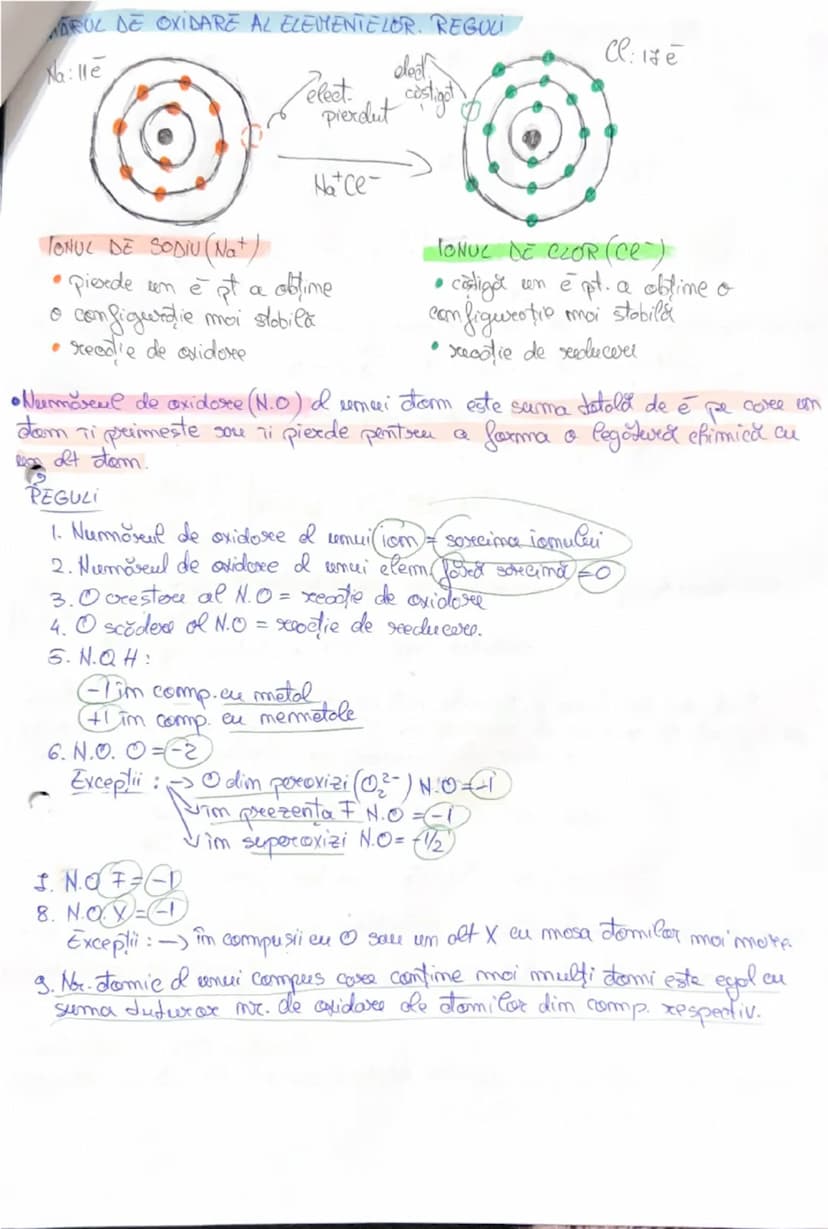 NUMĂRUL DE OXIDARE AL ELEMENTELOR. REGULI
Na: 11ē
elect. pierdut
elect. câștigat
Cl: 17ē
Na⁺Cl⁻
IONUL DE SODIU (Na⁺)
• pierde un ē pt a obține
o configurație mai stabilă
• reacție de oxidare
IONUL DE CLOR (Cl⁻)
• câștigă un ē pt. a obține o
configurație mai stabilă
• reacție de reducere
• Numărul de oxidare (N.O) al unui atom este suma totală de ē pe care un
atom îi primește sau îi pierde pentru a forma o legătură chimică cu
un alt atom.
REGULI
1. Numărul de oxidare al unui ion = sarcina ionului
2. Numărul de oxidare al unui elem. fără sarcină = 0
3. O creștere al N.O = reacție de oxidare
4. O scădere al N.O = reacție de reducere.
5. N.O H:
-1 în comp. cu metal
+1 în comp. cu nemetale
6. N.O. O = -2
Excepții : → O din peroxizi (O₂²⁻) N.O = -1
în prezența F N.O = -1
în superoxizi N.O = -1/2
7. N.O F = -1
8. N.O. X = -1
Excepții : → în compușii cu O sau un alt X cu masa atomilor mai mare.
9. Nr. atomic al unui compus care conține mai mulți atomi este egal cu
suma tuturor nr. de oxidare ale atomilor din comp. respectiv.